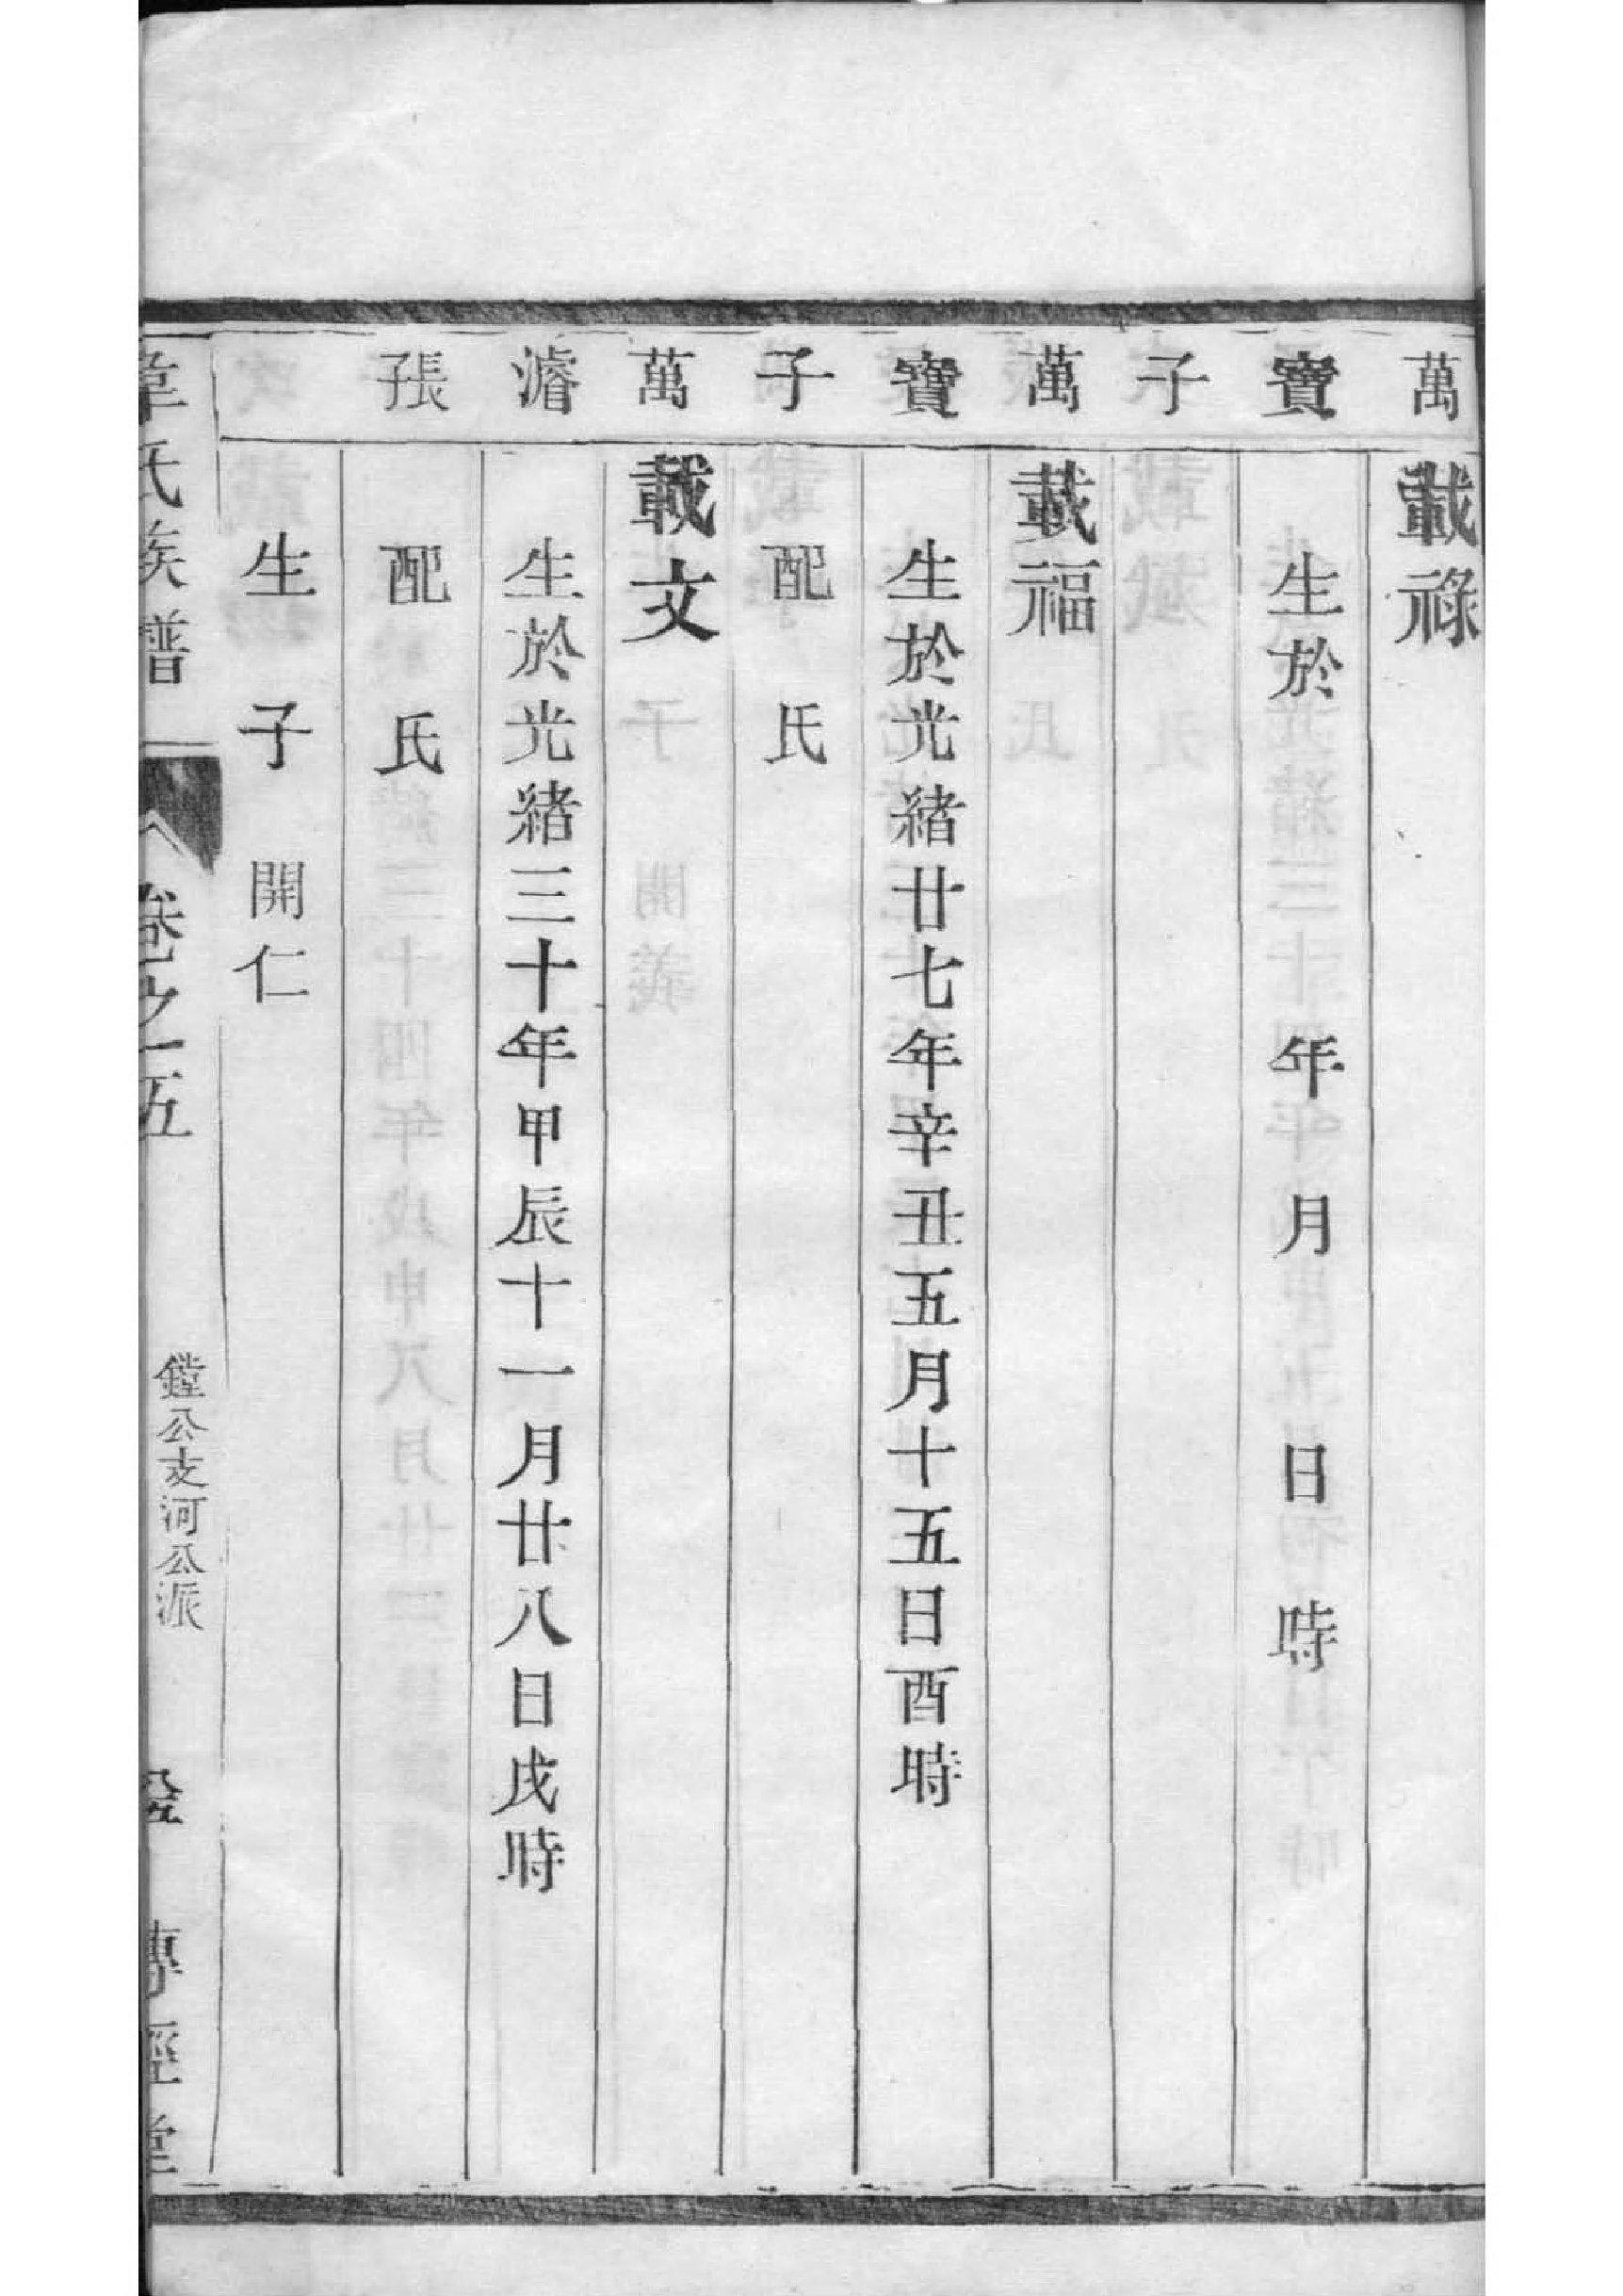 萬 載祿
寶 生於 年 月 日 時
子
萬 載福
寶 生於光緒廿七年辛丑五月十五日酉時
子 配 氏
萬 載文
濬 生於光緒三十年甲辰十一月廿八日戌時
子張 配 氏
生 子 開仁
韋氏族譜 卷之五 鏜公支河公派 傳經堂